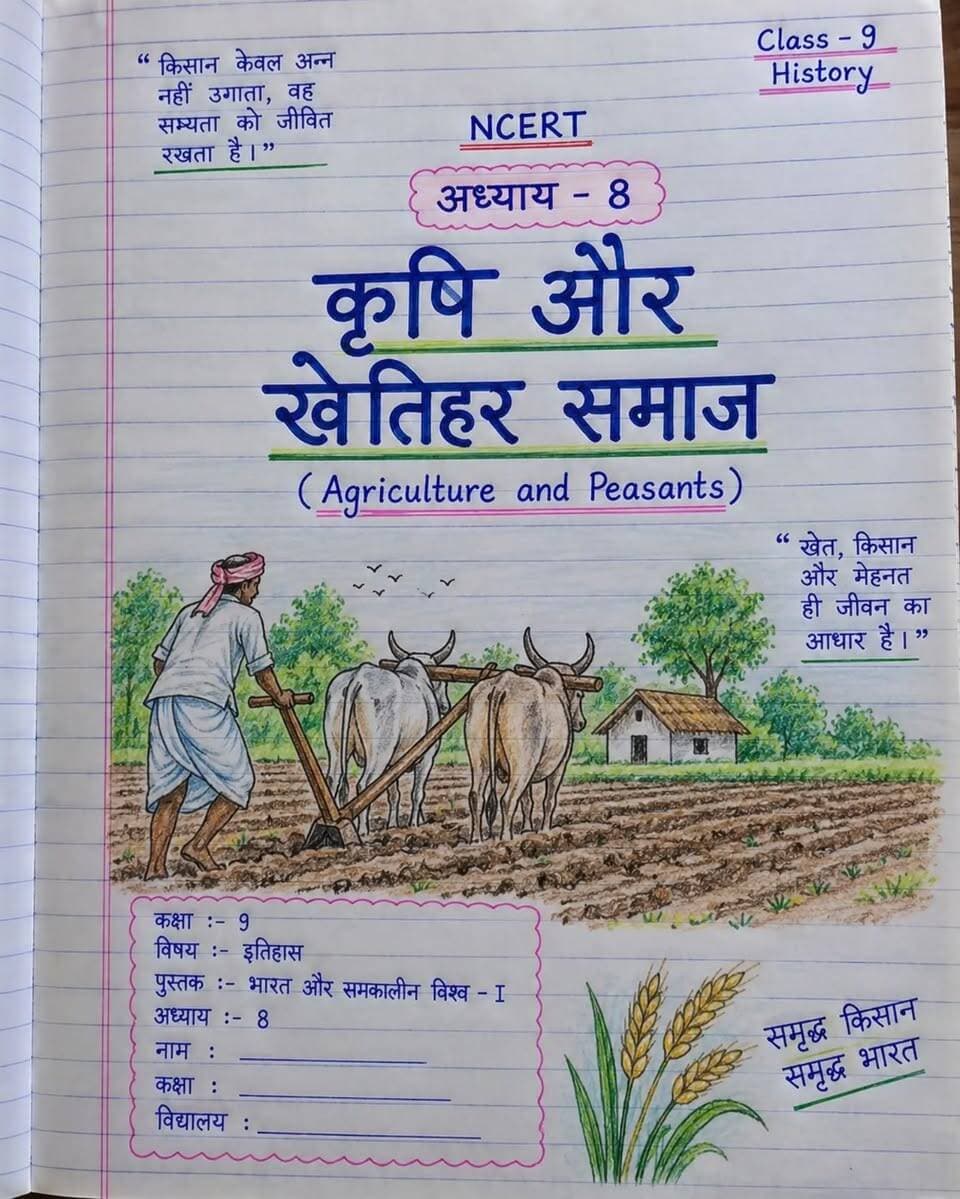 “ किसान केवल अन्न
नहीं उगाता, वह
सभ्यता को जीवित
रखता है।”
Class - 9
History
NCERT
अध्याय - 8
कृषि और
खेतिहर समाज
( Agriculture and Peasants)
“ खेत, किसान
और मेहनत
ही जीवन का
आधार है।”
कक्षा :- 9
विषय :- इतिहास
पुस्तक :- भारत और समकालीन विश्व - I
अध्याय :- 8
नाम :
कक्षा :
विद्यालय :
समृद्ध किसान
समृद्ध भारत